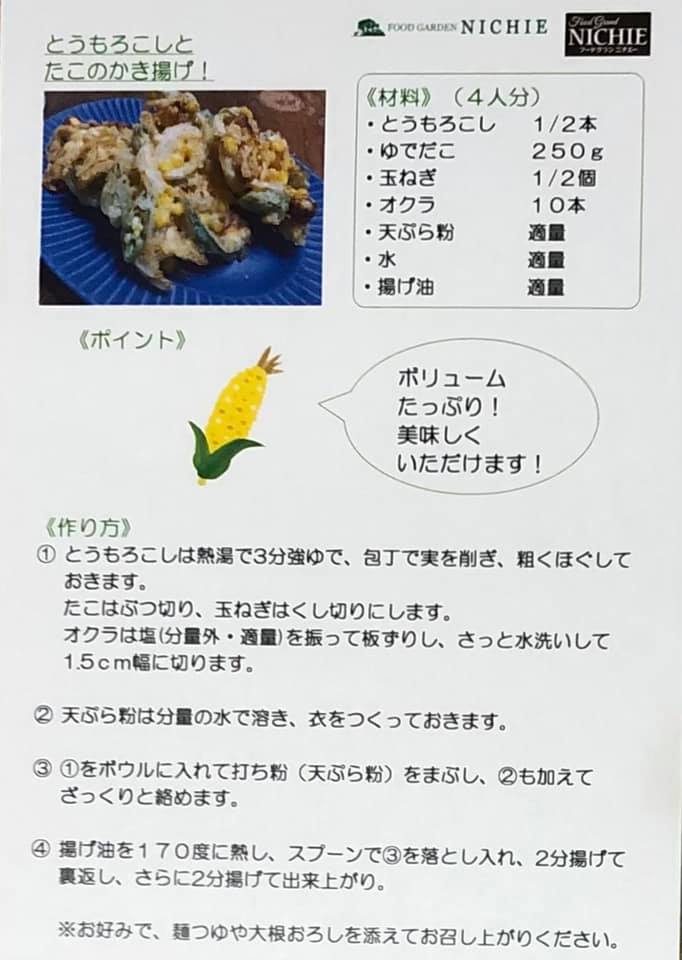 とうもろこしと
たこのかき揚げ！
FOOD GARDEN NICHIE
Food Grand
NICHIE
フードグラン ニチエー
《材料》（４人分）
・とうもろこし　１/２本
・ゆでだこ　２５０ｇ
・玉ねぎ　１/２個
・オクラ　１０本
・天ぷら粉　適量
・水　適量
・揚げ油　適量
《ポイント》
ボリューム
たっぷり！
美味しく
いただけます！
《作り方》
① とうもろこしは熱湯で3分強ゆで、包丁で実を削ぎ、粗くほぐして
おきます。
たこはぶつ切り、玉ねぎはくし切りにします。
オクラは塩(分量外・適量)を振って板ずりし、さっと水洗いして
1.5ｃｍ幅に切ります。
② 天ぷら粉は分量の水で溶き、衣をつくっておきます。
③ ①をボウルに入れて打ち粉（天ぷら粉）をまぶし、②も加えて
ざっくりと絡めます。
④ 揚げ油を１７０度に熱し、スプーンで③を落とし入れ、2分揚げて
裏返し、さらに2分揚げて出来上がり。
※お好みで、麺つゆや大根おろしを添えてお召し上がりください。